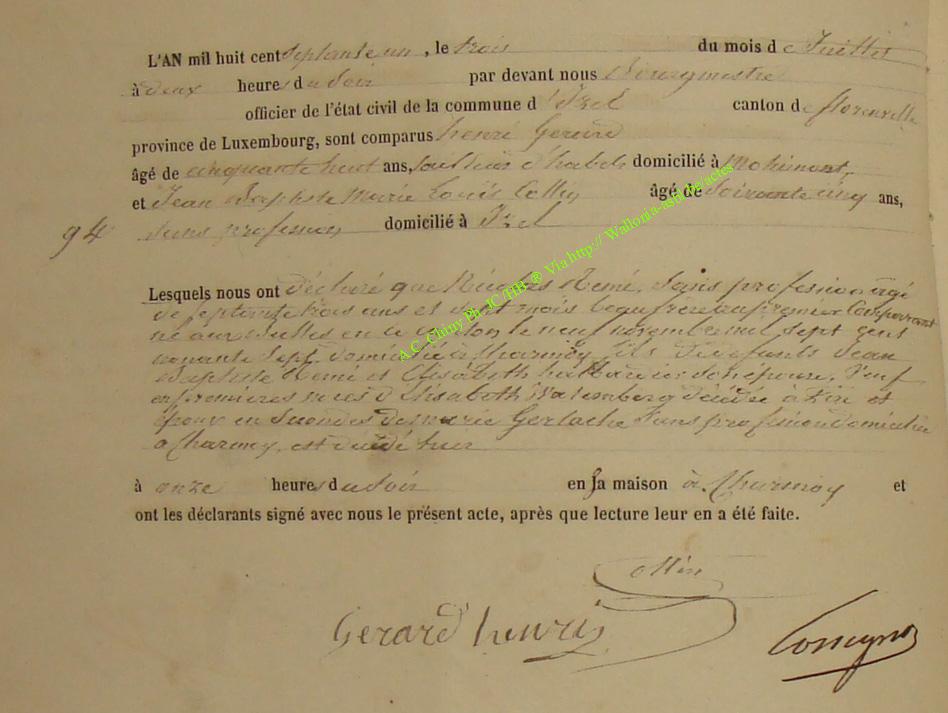 L'AN mil huit cent septante un, le trois du mois de Juillet
à deux heures du soir par devant nous Bourgmestre
officier de l'état civil de la commune d'Izel canton de florenville
province de Luxembourg, sont comparus henri Gerard
âgé de cinquante huit ans, tailleur d'habits domicilié à Mohimont,
et Jean Baptiste Marie Louis Collin âgé de soixante cinq ans,
94 sans profession domicilié à Izel
Lesquels nous ont déclaré que Nicolas Remé, sans profession agé
de septante trois ans et sept mois beau frère au premier Comparant
né aux Bulles en ce Canton le neuf novembre mil sept cent
nonante sept domicilié à Charmoy, fils de defunts Jean
Baptiste Remé et Elisabeth son épouse, veuf
en premières noces d'Elisabeth décédée à et
époux en Secondes de marie Gerlache Sans profession domiciliée
a Charmoy, est décédé hier
à onze heures du Soir en sa maison à Charmoy et
ont les déclarants signé avec nous le présent acte, après que lecture leur en a été faite.
A.C. Chiny Ph. JC/HB ® Via http:// Wallonia-asbl.be/actes
Collin
Gérard henri